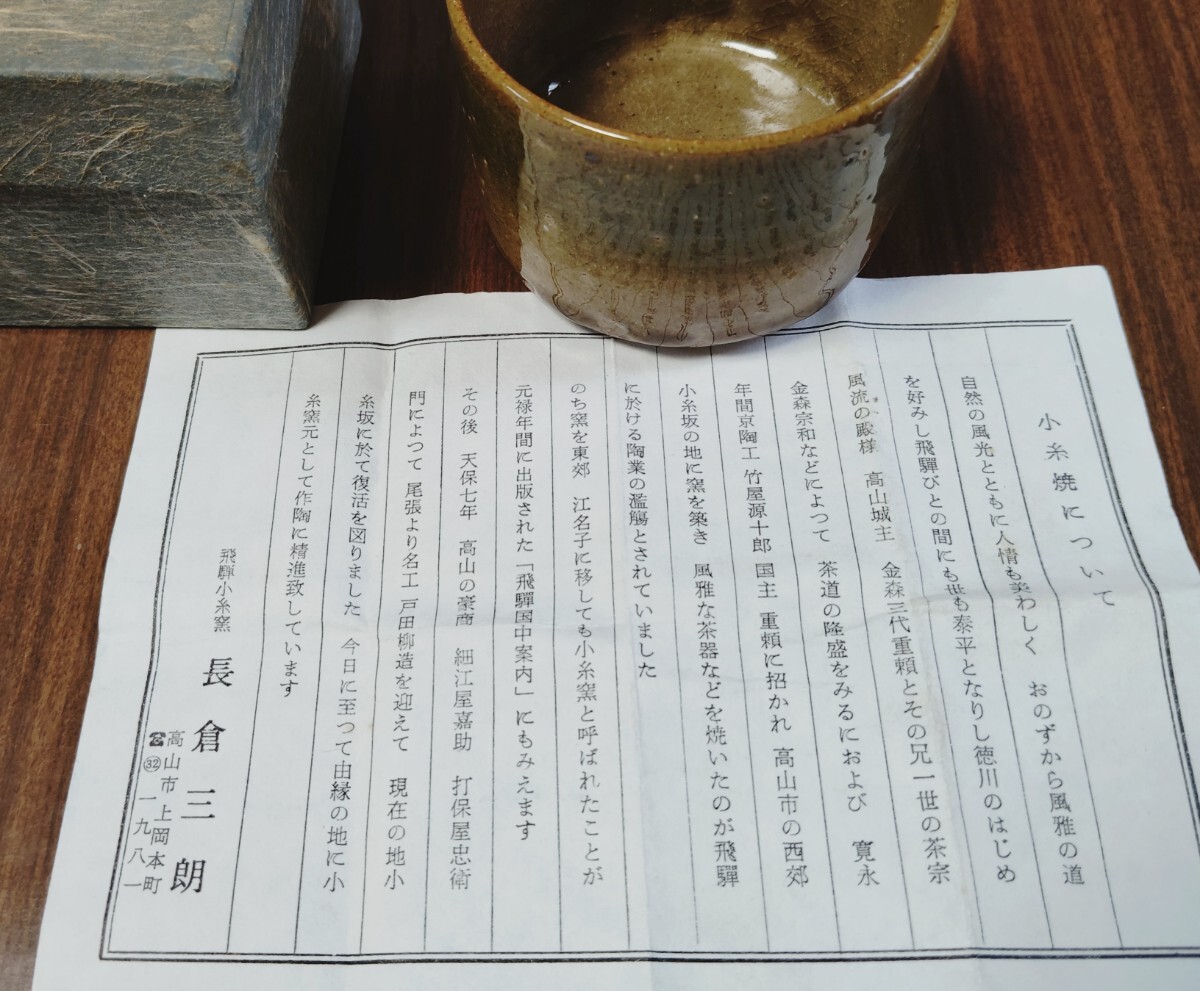 小糸焼について
自然の風光とともに人情も美わしく　おのずから風雅の道
を好みし飛驒びとの間にも世も泰平となりし徳川のはじめ
風流の殿様　高山城主　金森三代重頼とその兄一世の茶宗
金森宗和などによつて　茶道の隆盛をみるにおよび　寛永
年間京陶工　竹屋源十郎　国主　重頼に招かれ　高山市の西郊
小糸坂の地に窯を築き　風雅な茶器などを焼いたのが飛驒
に於ける陶業の濫觴とされていました
のち窯を東郊　江名子に移しても小糸窯と呼ばれたことが
元禄年間に出版された「飛驒国中案内」にもみえます
その後　天保七年　高山の豪商　細江屋嘉助　打保屋忠衛
門によつて　尾張より名工　戸田柳造を迎えて　現在の地小
糸坂に於て復活を図りました　今日に至つて由縁の地に小
糸窯元として作陶に精進致しています
飛驒小糸窯　長倉三朗
高山市上岡本町
☎㉜一九八一